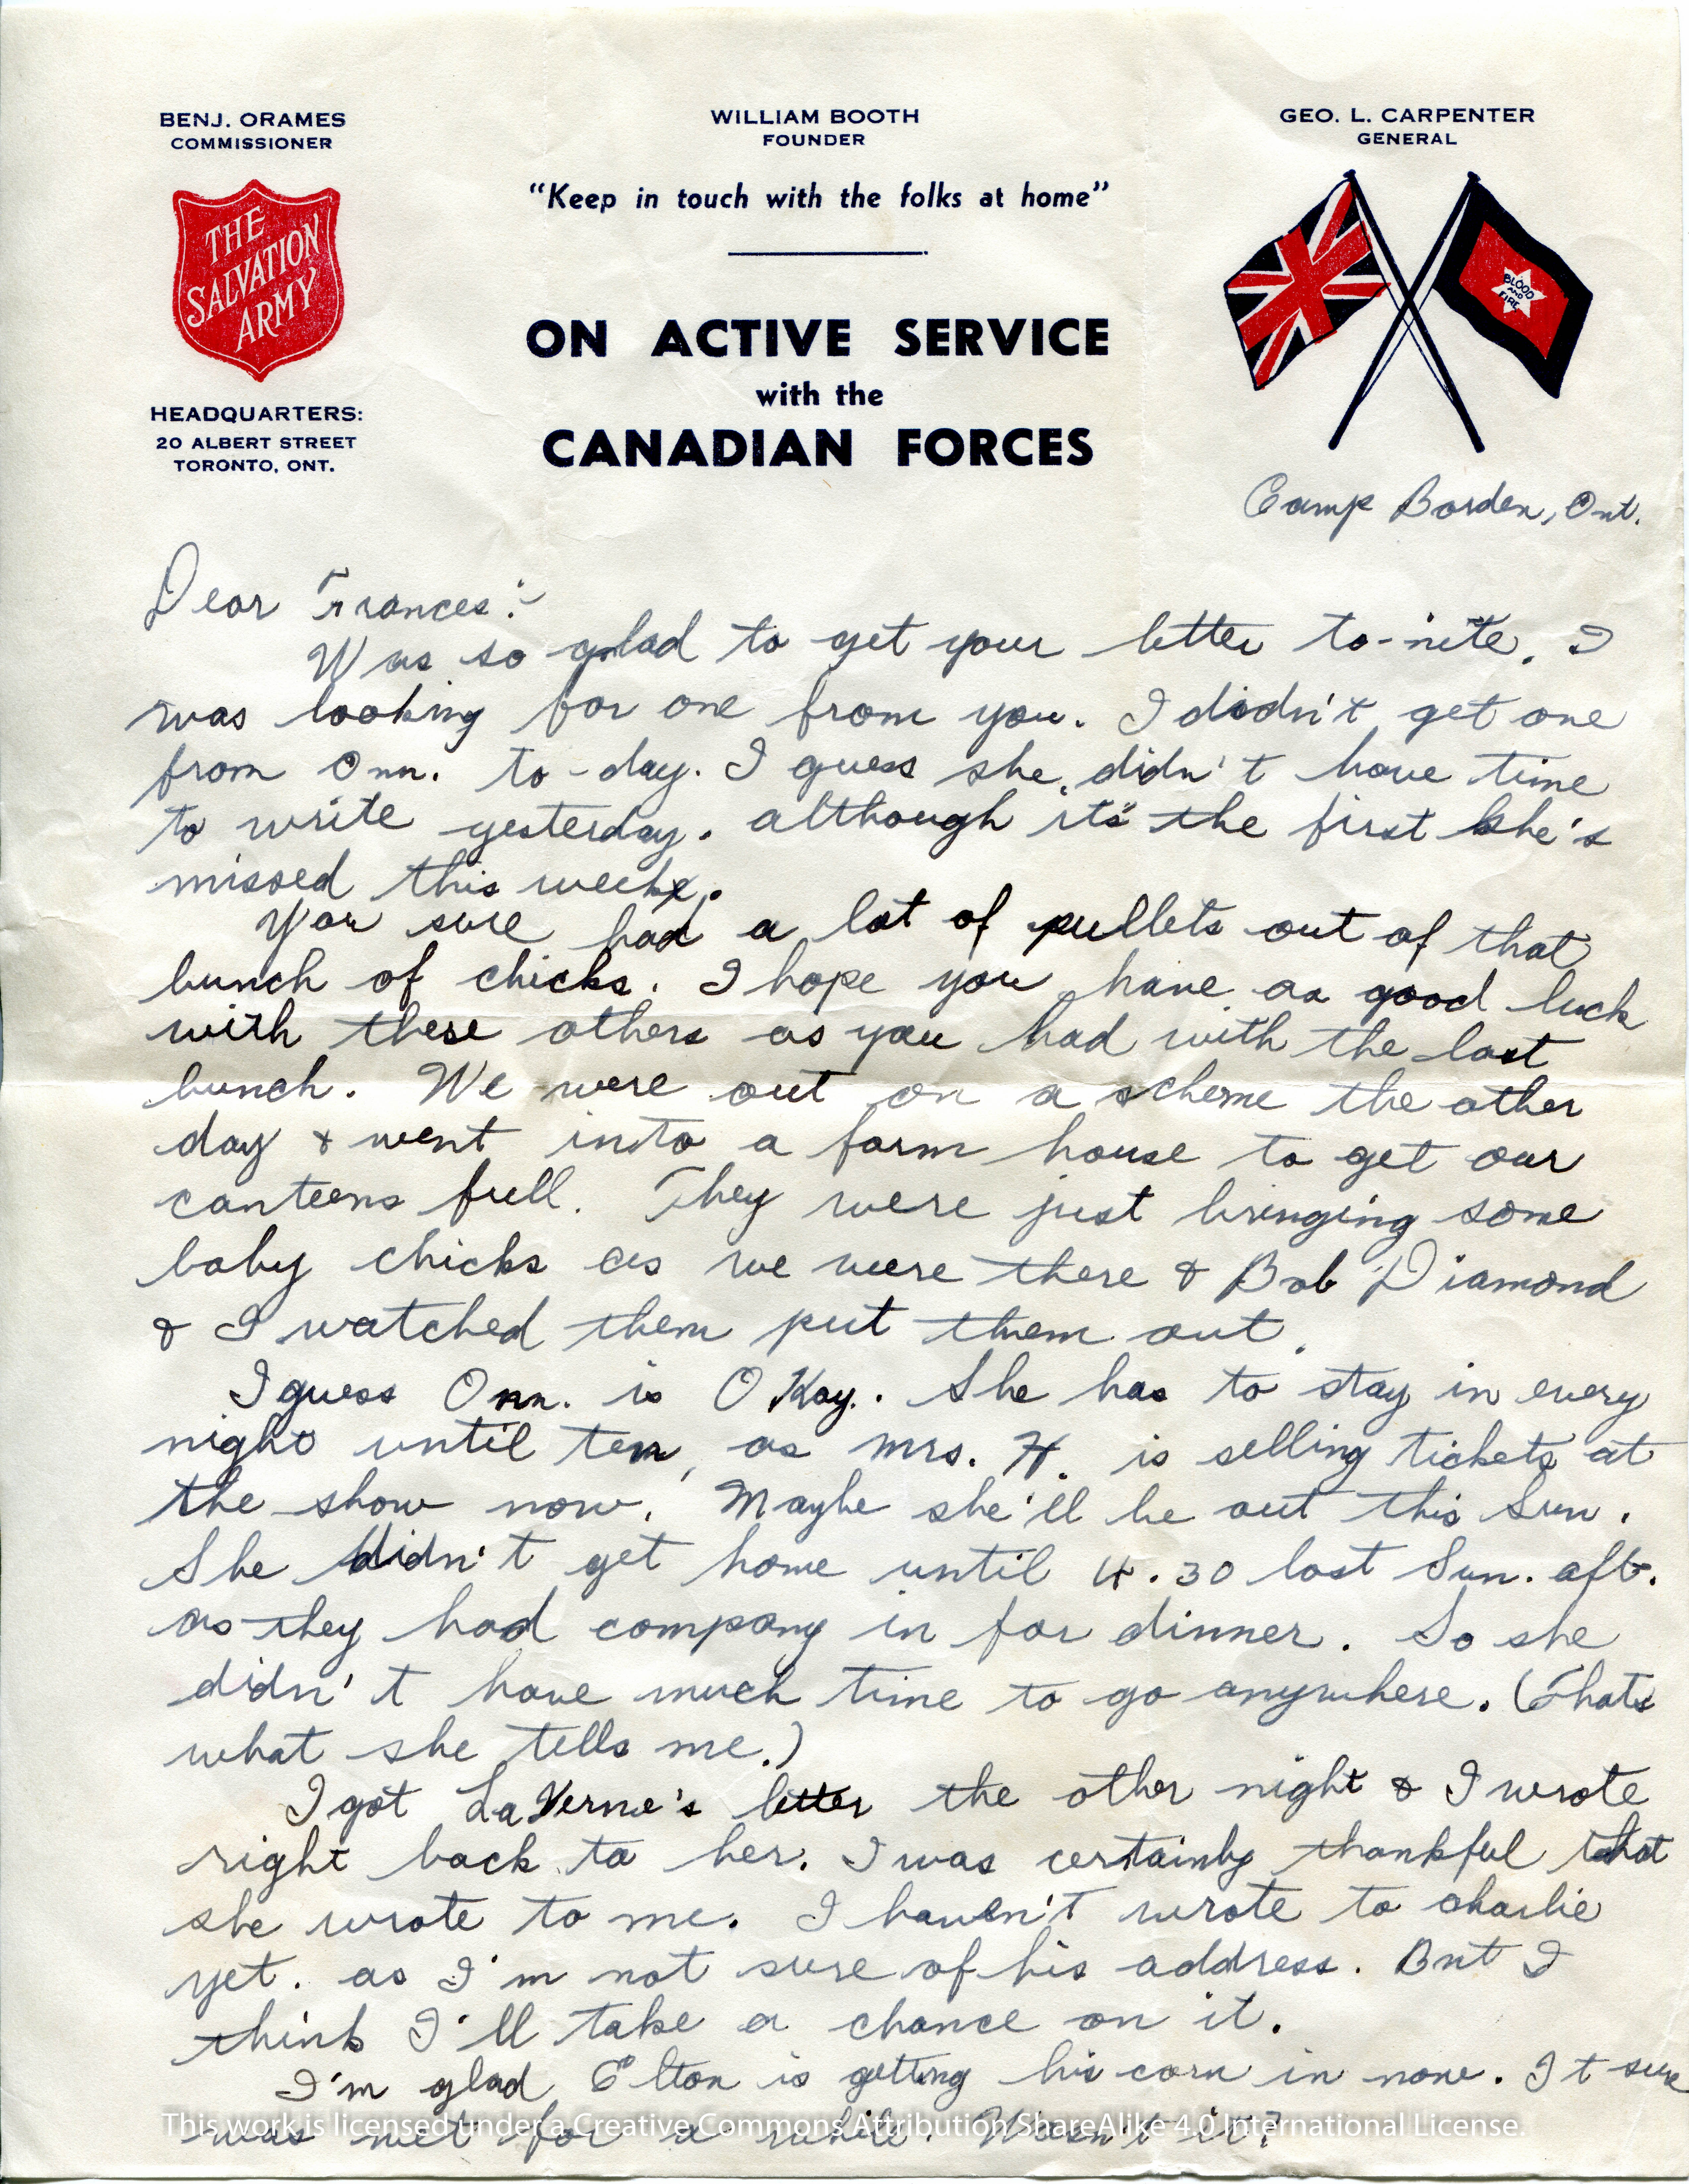 BENJ. ORAMES
COMMISSIONER
WILLIAM BOOTH
FOUNDER
GEO. L. CARPENTER
GENERAL
"Keep in touch with the folks at home"
THE
SALVATION
ARMY
BLOOD
AND
FIRE
ON ACTIVE SERVICE
with the
CANADIAN FORCES
HEADQUARTERS:
20 ALBERT STREET
TORONTO, ONT.
Camp Borden, Ont.
Dear Frances:-
Was so glad to get your letter to-nite. I
was looking for one from you. I didn't get one
from Onn. to-day. I guess she didn't have time
to write yesterday. although it's the first she's
missed this week.
You sure had a lot of pullets out of that
bunch of chicks. I hope you have as good luck
with these others as you had with the last
bunch. We were out on a scheme the other
day & went into a farm house to get our
canteens full. They were just bringing some
baby chicks as we were there & Bob Diamond
& I watched them put them out.
I guess Onn. is O Kay. She has to stay in every
night until ten, as Mrs. H. is selling tickets at
the show now. Maybe she'll be out this Sun.
She didn't get home until 4.30 last Sun. aft.
as they had company in for dinner. So she
didn't have much time to go anywhere. (Thats
what she tells me.)
I got LaVerne's letter the other night & I wrote
right back to her. I was certainly thankful that
she wrote to me. I haven't wrote to Charlie
yet. as I'm not sure of his address. But I
think I'll take a chance on it.
I'm glad Elton is getting his corn in now. It sure
was wet for a while. Wasn't it?
This work is licensed under a Creative Commons Attribution-ShareAlike 4.0 International License.